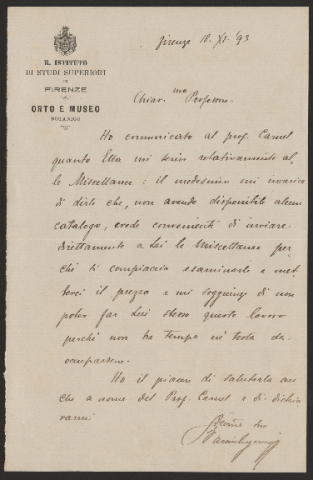 R. ISTITUTO
DI STUDI SUPERIORI
IN
FIRENZE
ORTO E MUSEO
BOTANICO
Firenze 18. XI. '93
Chiar.mo Professore
Ho comunicato al prof. Caruel
quanto Ella mi scrive relativamente al-
le Miscellanee: il medesimo mi incarica
di dirle che, non avendo disponibile alcun
catalogo, crede conveniente di inviare
direttamente a Lei le Miscellanee per-
chè si compiaccia esaminarle e met-
terci il prezzo e mi soggiunge di non
poter far Lui stesso questo lavoro
perchè non ha tempo nè testa da
occuparsene.
Ho il piacere di salutarla an-
che a nome del Prof. Caruel e di dichia-
rarmi
suo